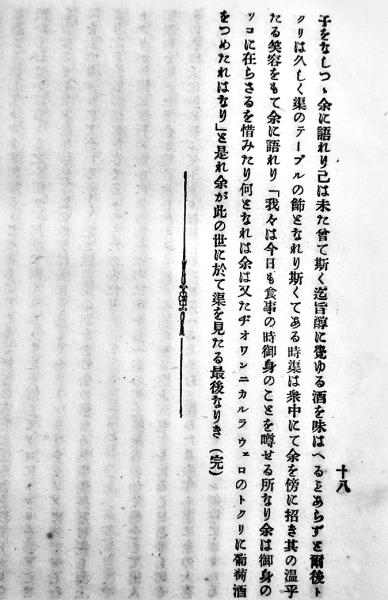 十八
子をなしつゝ余に語れり己は未た曾て斯く迄旨醇に覺ゆる酒を味はへるとあらずと爾後ト
クリは久しく渠のテーブルの飾となれり斯くてある時渠は衆中にて余を傍に招き其の温乎
たる笑容をもて余に語れり「我々は今日も食事の時御身のことを噂せる所なり余は御身の
ッコに在らさるを惜みたり何となれは余は又たヂオワンニカルラヴェロのトクリに葡萄酒
をつめたれはなり」と是れ余が此の世に於て渠を見たる最後なりき（完）